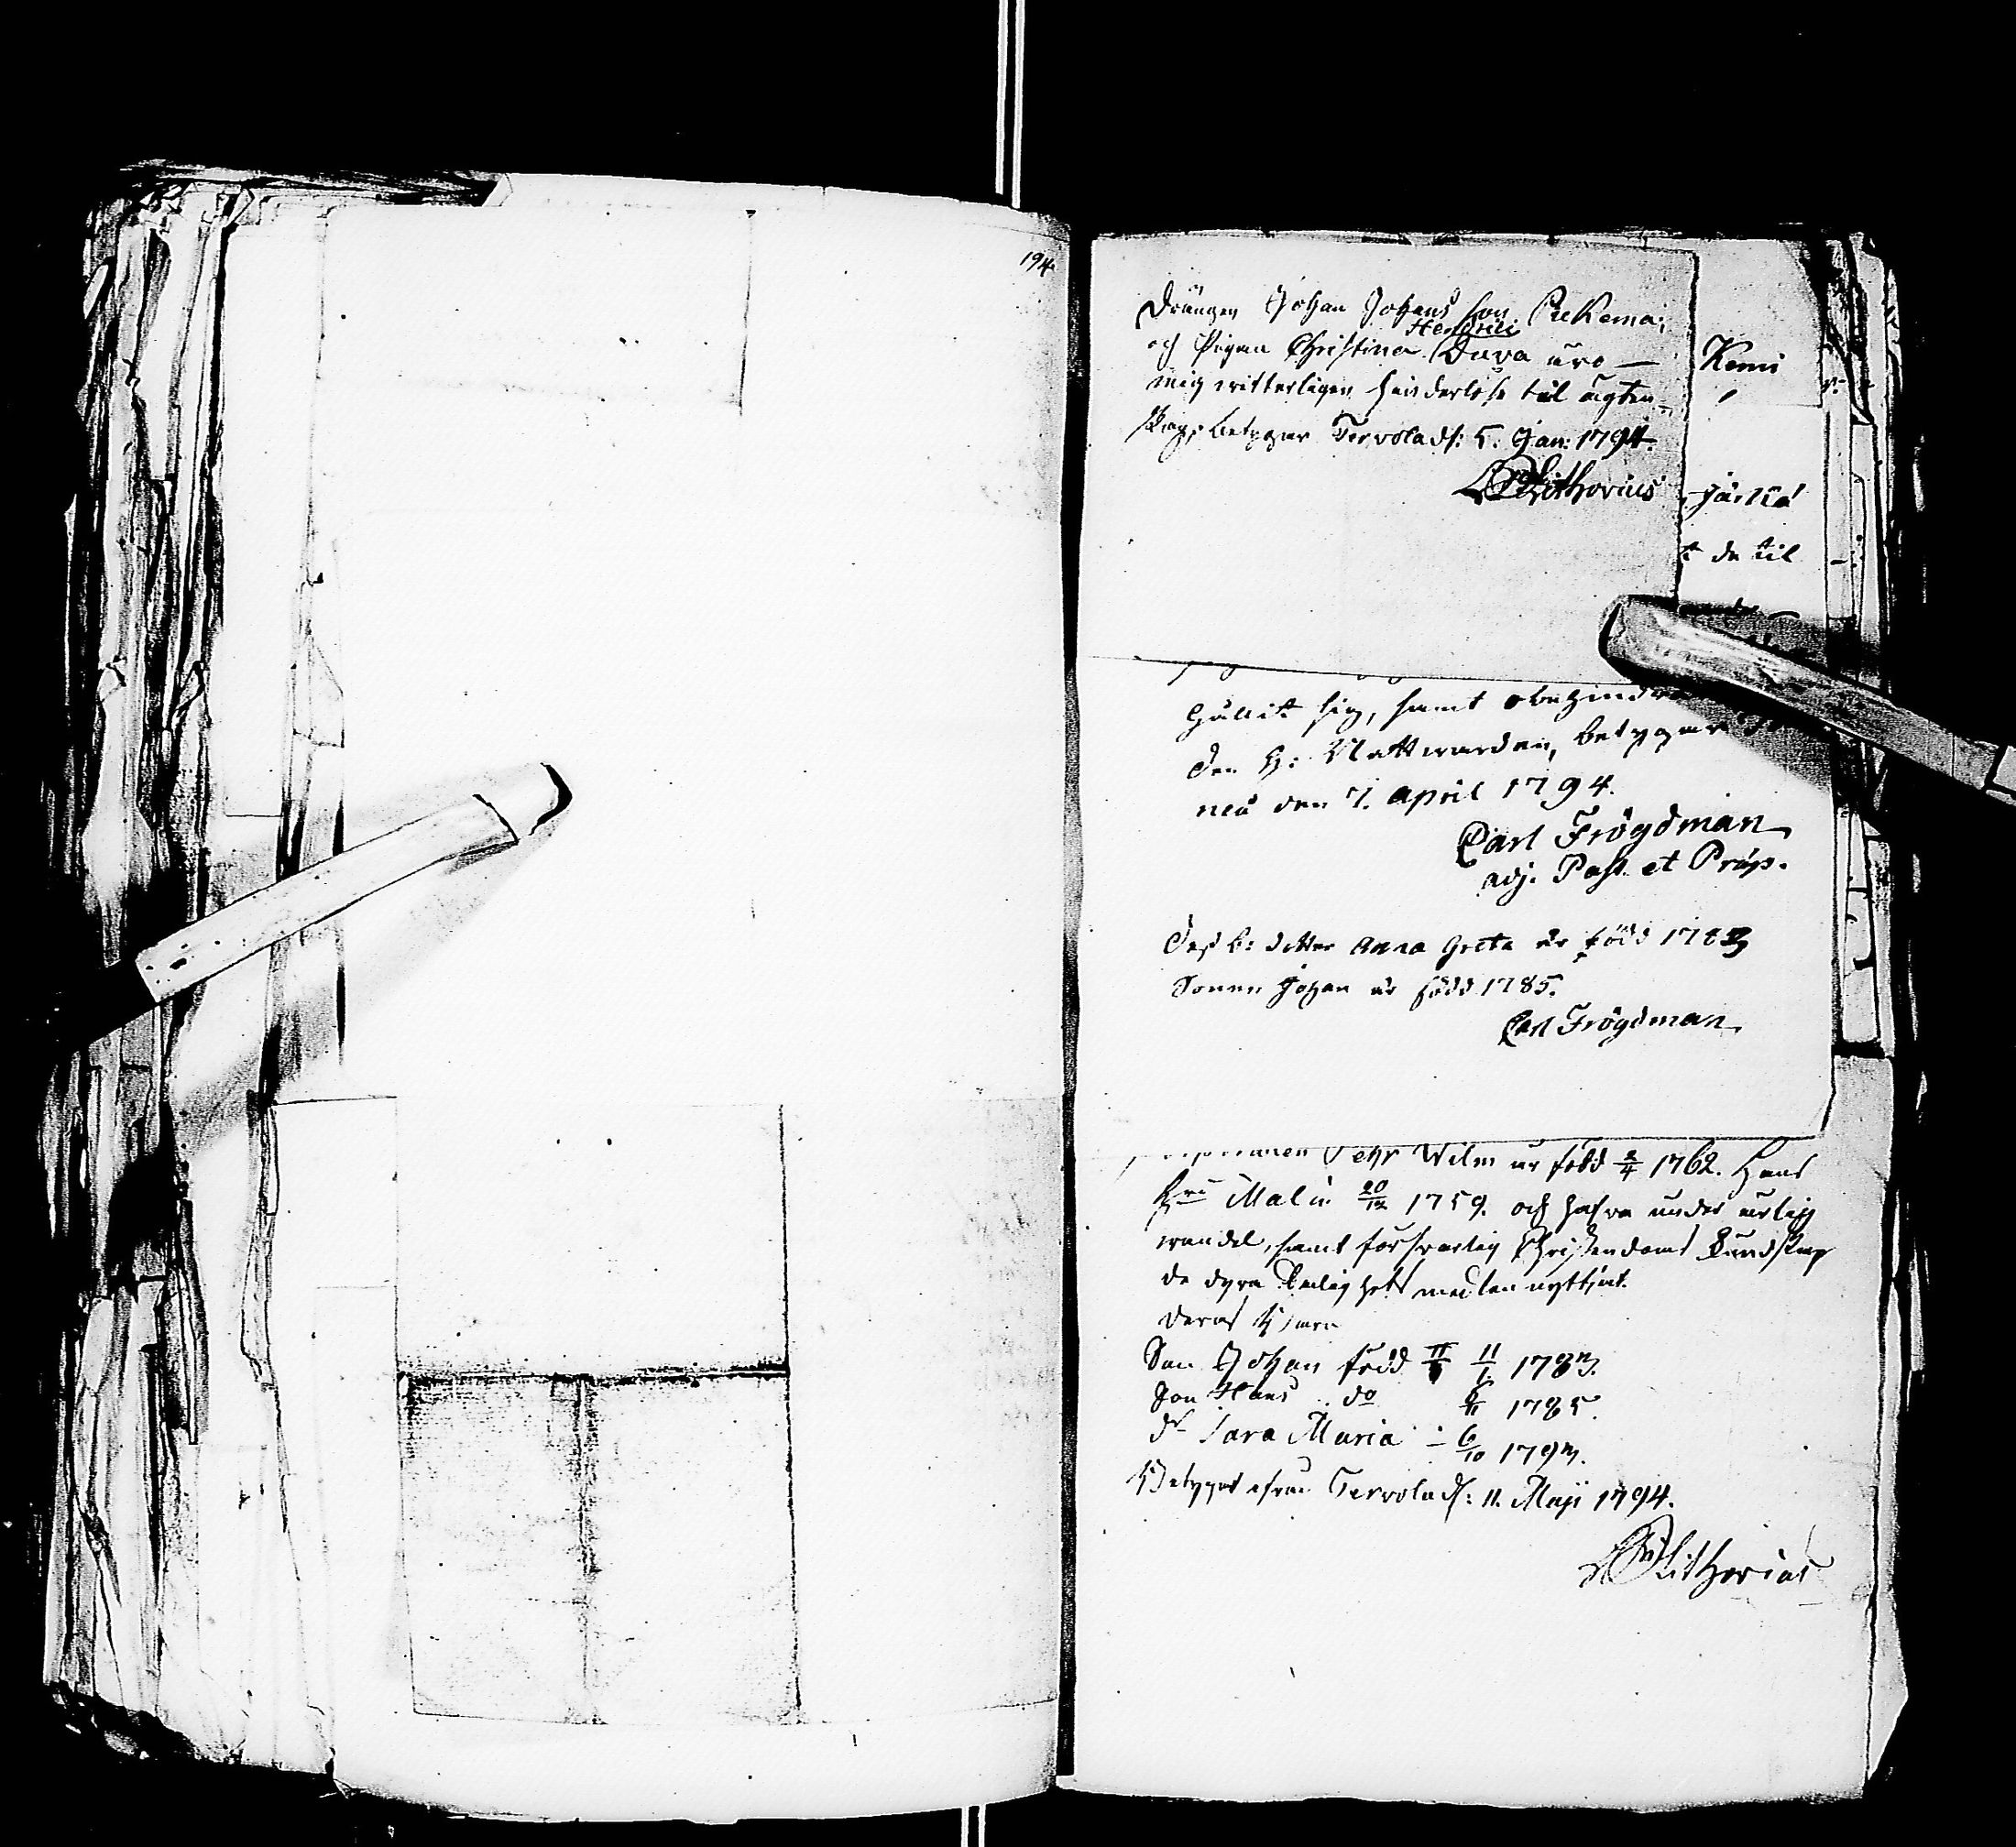 194.
Drängen Johan Johans son
Hendrici
och Pigan Christina Dava äro —
mig witterligen hinderlöse til ägten-
skap, betygar Tervola d: 5. Jan: 1794.
Lithovius
Kemi
t de til
hållit sig, samt obehindr
den H: Nattwarden, betygar
neå den 7. April 1794.
Carl Frögdman
adj. Past. et Präp.
Dess b: dotter Anna Greta är född 1783
Sonen Johan är född 1785.
Carl Frögdman
Pehr Wilm är född 2/4 1762. Hans
Hru Malin 20/12 1759. och hafva under ärlig
wandel, samt försvarlig Christendoms Kundskap
de dyra Salighets medlen nyttjat.
Deras Barn
Son Johan född 11/1 1783.
Son Hans do 6/11 1785.
dr Sara Maria - 6/10 1793.
Betygas ifrån Tervola d: 11. Maji 1794.
Lithovius